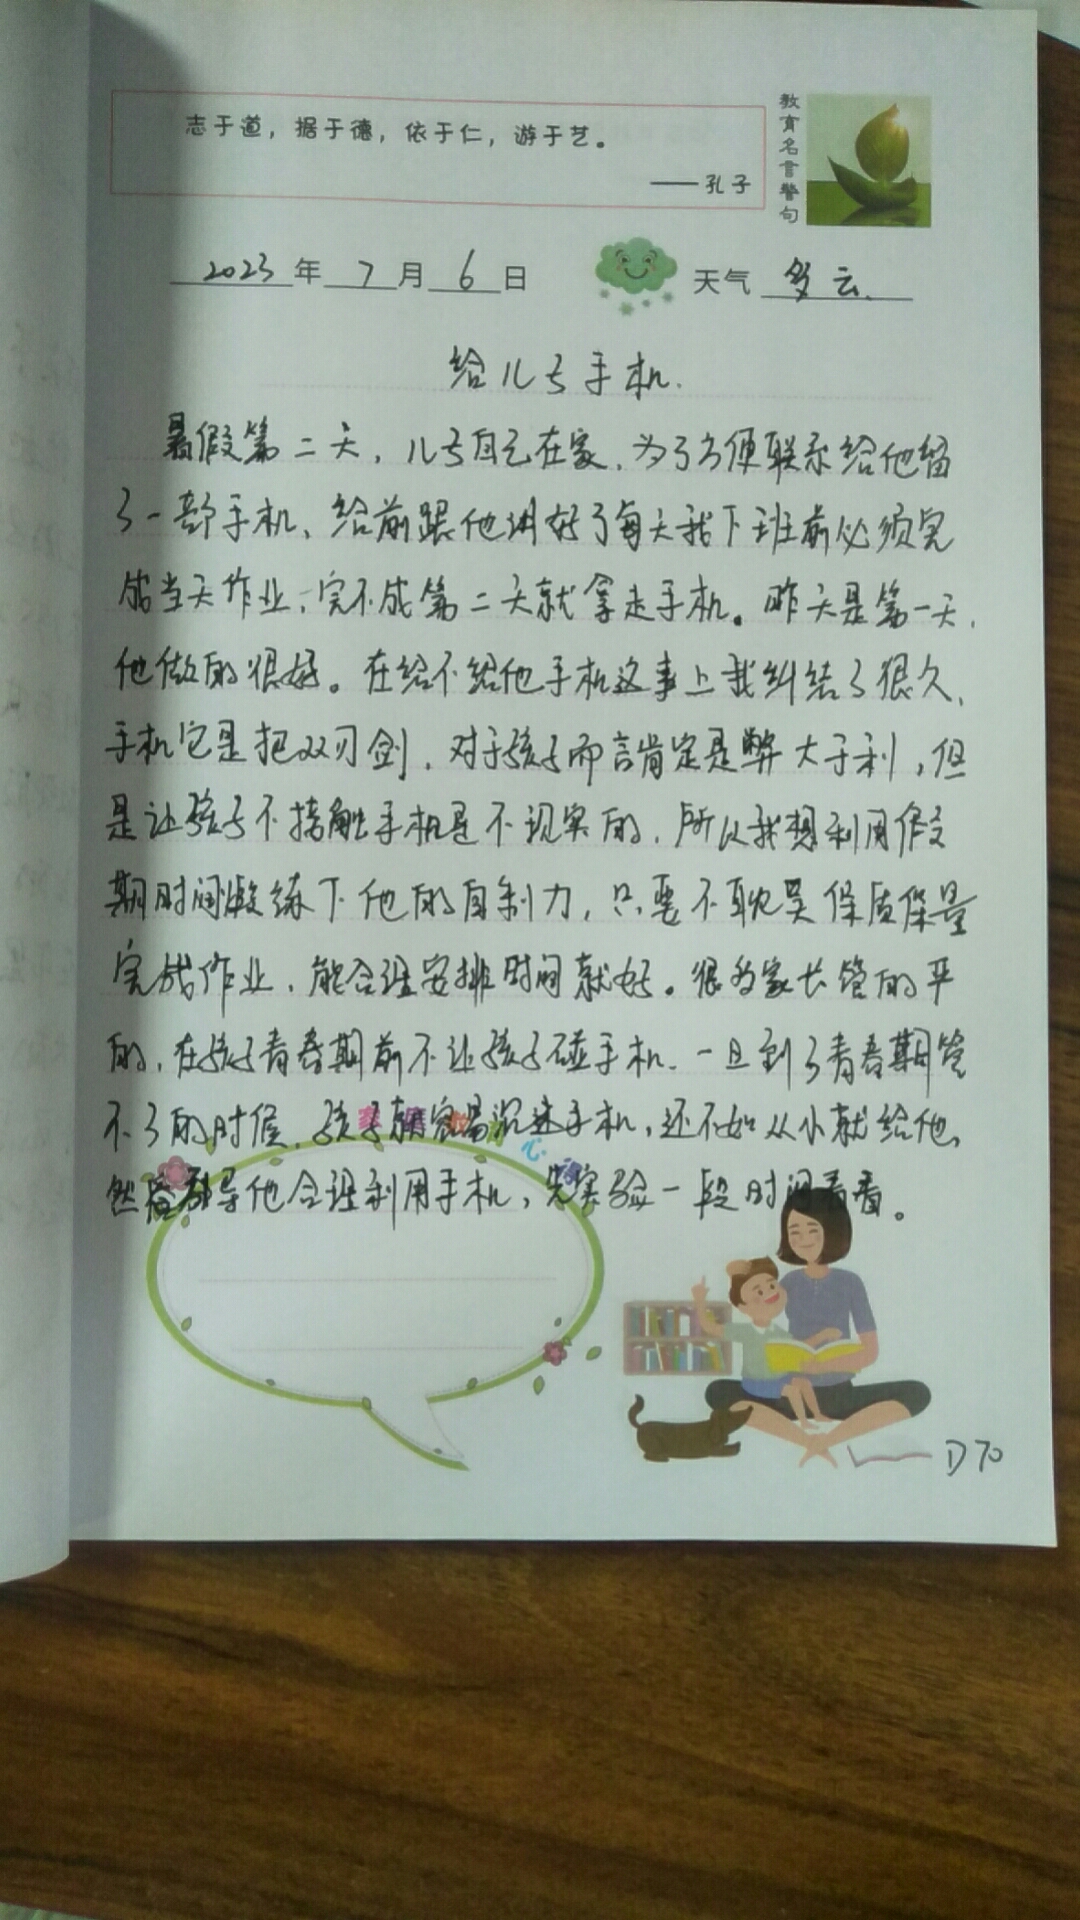 志于道，据于德，依于仁，游于艺。
——孔子
教育名言警句
2023年7月6日 天气 多云.
给儿子手机.
暑假第二天，儿子自己在家，为了方便联系给他留
了一部手机、给前跟他讲好了每天我下班前必须完
成当天作业，完不成第二天就拿走手机。昨天是第一天，
他做的很好。在给不给他手机这事上我纠结了很久，
手机它是把双刃剑，对于孩子而言肯定是弊大于利，但
是让孩子不接触手机是不现实的，所以我想利用假
期时间锻练下他的自制力，只要不耽误保质保量
完成作业，能合理安排时间就好。很多家长管的严
的，在孩子青春期前不让孩子碰手机.一旦到了青春期管
不了的时候，孩子就容易沉迷手机，还不如从小就给他，
然后引导他合理利用手机，先实验一段时间看看。
D70